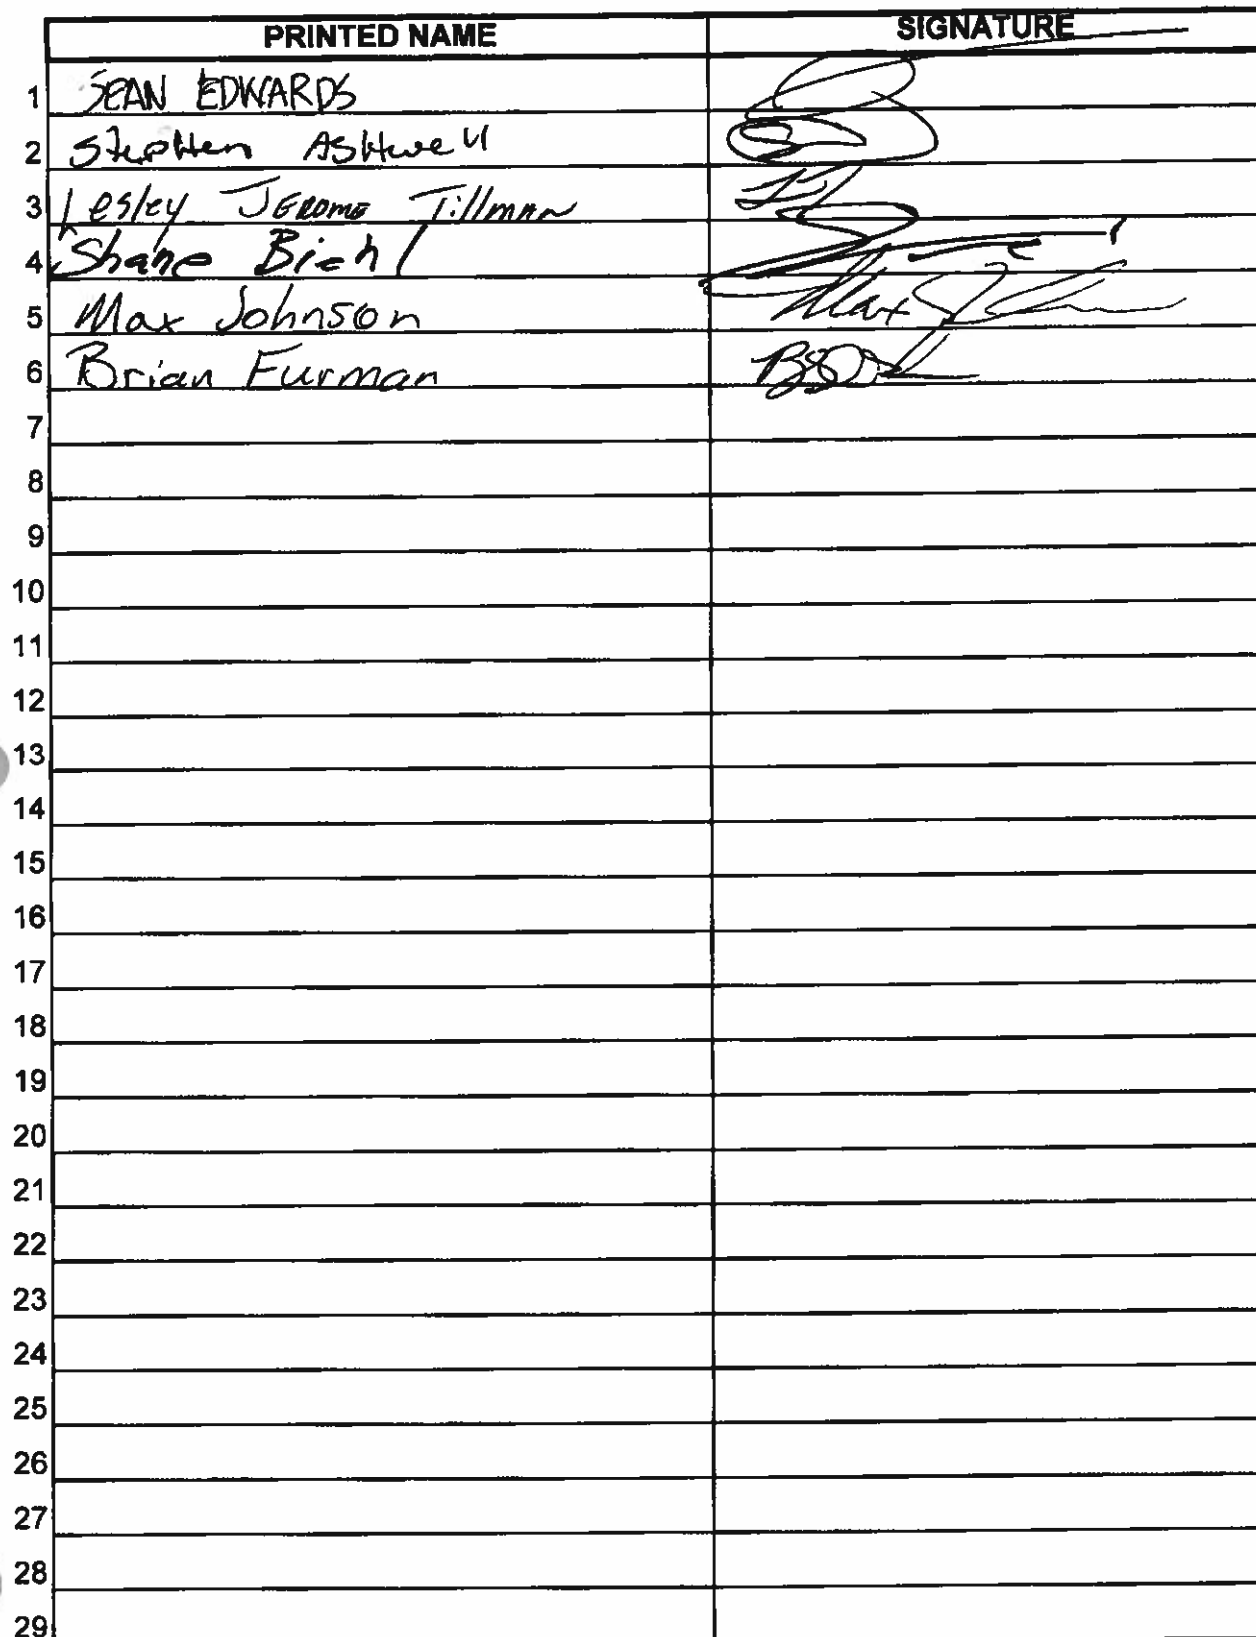 PRINTED NAME SIGNATURE
1 SEAN EDWARDS
2 Stephen Ashwell
3 Lesley JEROME Tillman
4 Shane Biehl
5 Max Johnson
6 Brian Furman
7
8
9
10
11
12
13
14
15
16
17
18
19
20
21
22
23
24
25
26
27
28
29